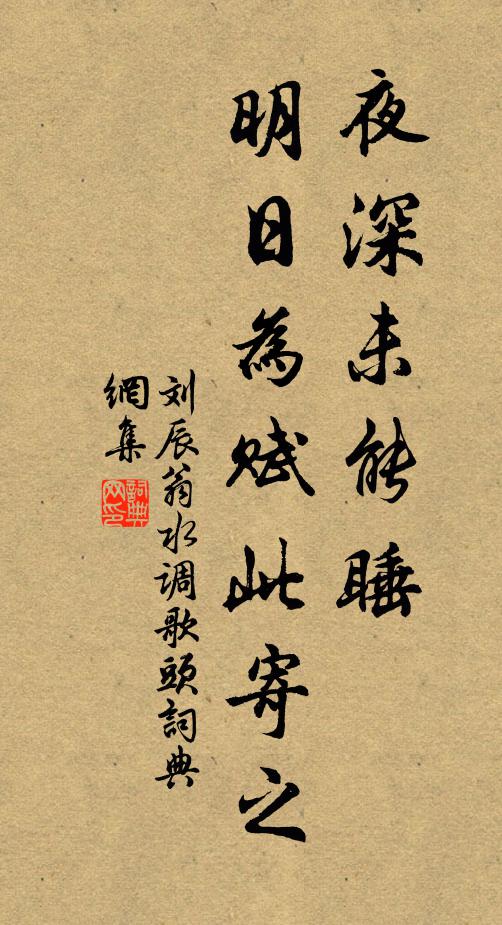 夜深未能睡
明日為赋此寄之
刘辰翁水调歌頭詞典
網集
詞典
网印